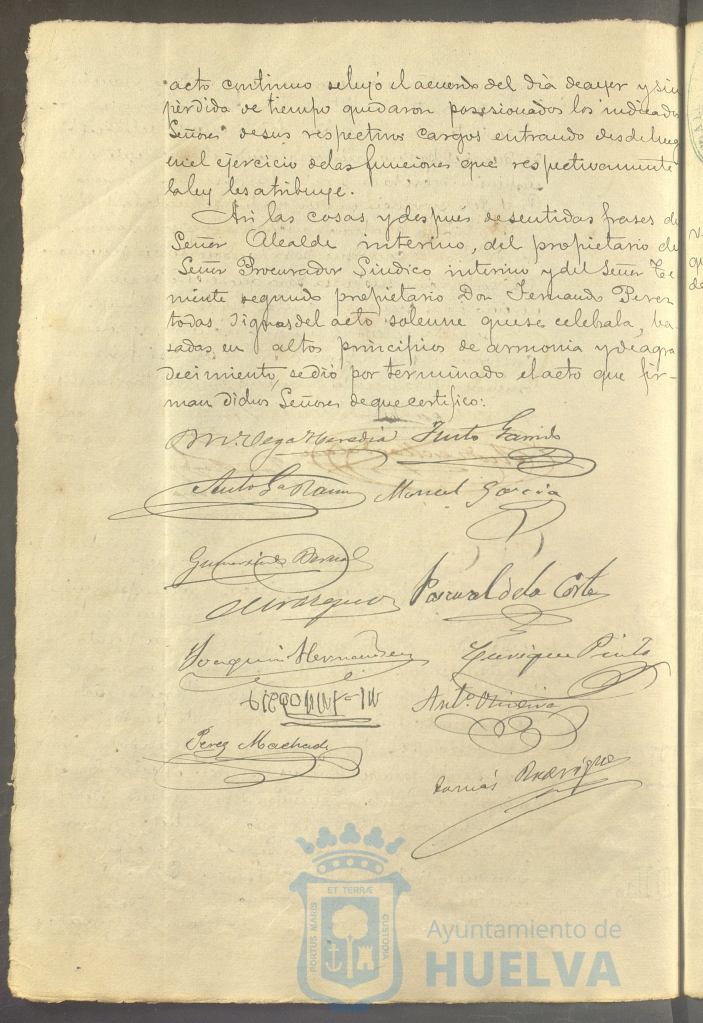 acto continuo se leyó el acuerdo del dia de ayer y sin
pérdida de tiempo quedaron posesionados los indicados
Señores de sus respectivos cargos entrando desde luego
en el ejercicio de las funciones que respectivamente
la ley les atribuye.
Asi las cosas, y después de sentidas frases del
Señor Alcalde interino, del propietario del
Señor Procurador Sindico interino y del Señor Te-
niente segundo propietario Don Fernando Perez
todas dignas del acto solemne que se celebraba, ba-
sadas en altos principios de armonia y de agra-
decimiento, se dió por terminado el acto que fir-
man dichos Señores de que certifico:
M. Vega Heredia Justo Garrido
Anto Manuel Garcia
Gumersindo
Vazquez Pascual de la Corte
Joaquin Hernandez Enrique Pinto
Anto. Oliveira
Perez Machado
Tomás Rodriguez
PORTUS MARIS ET TERRÆ CUSTODIA
Ayuntamiento de
HUELVA